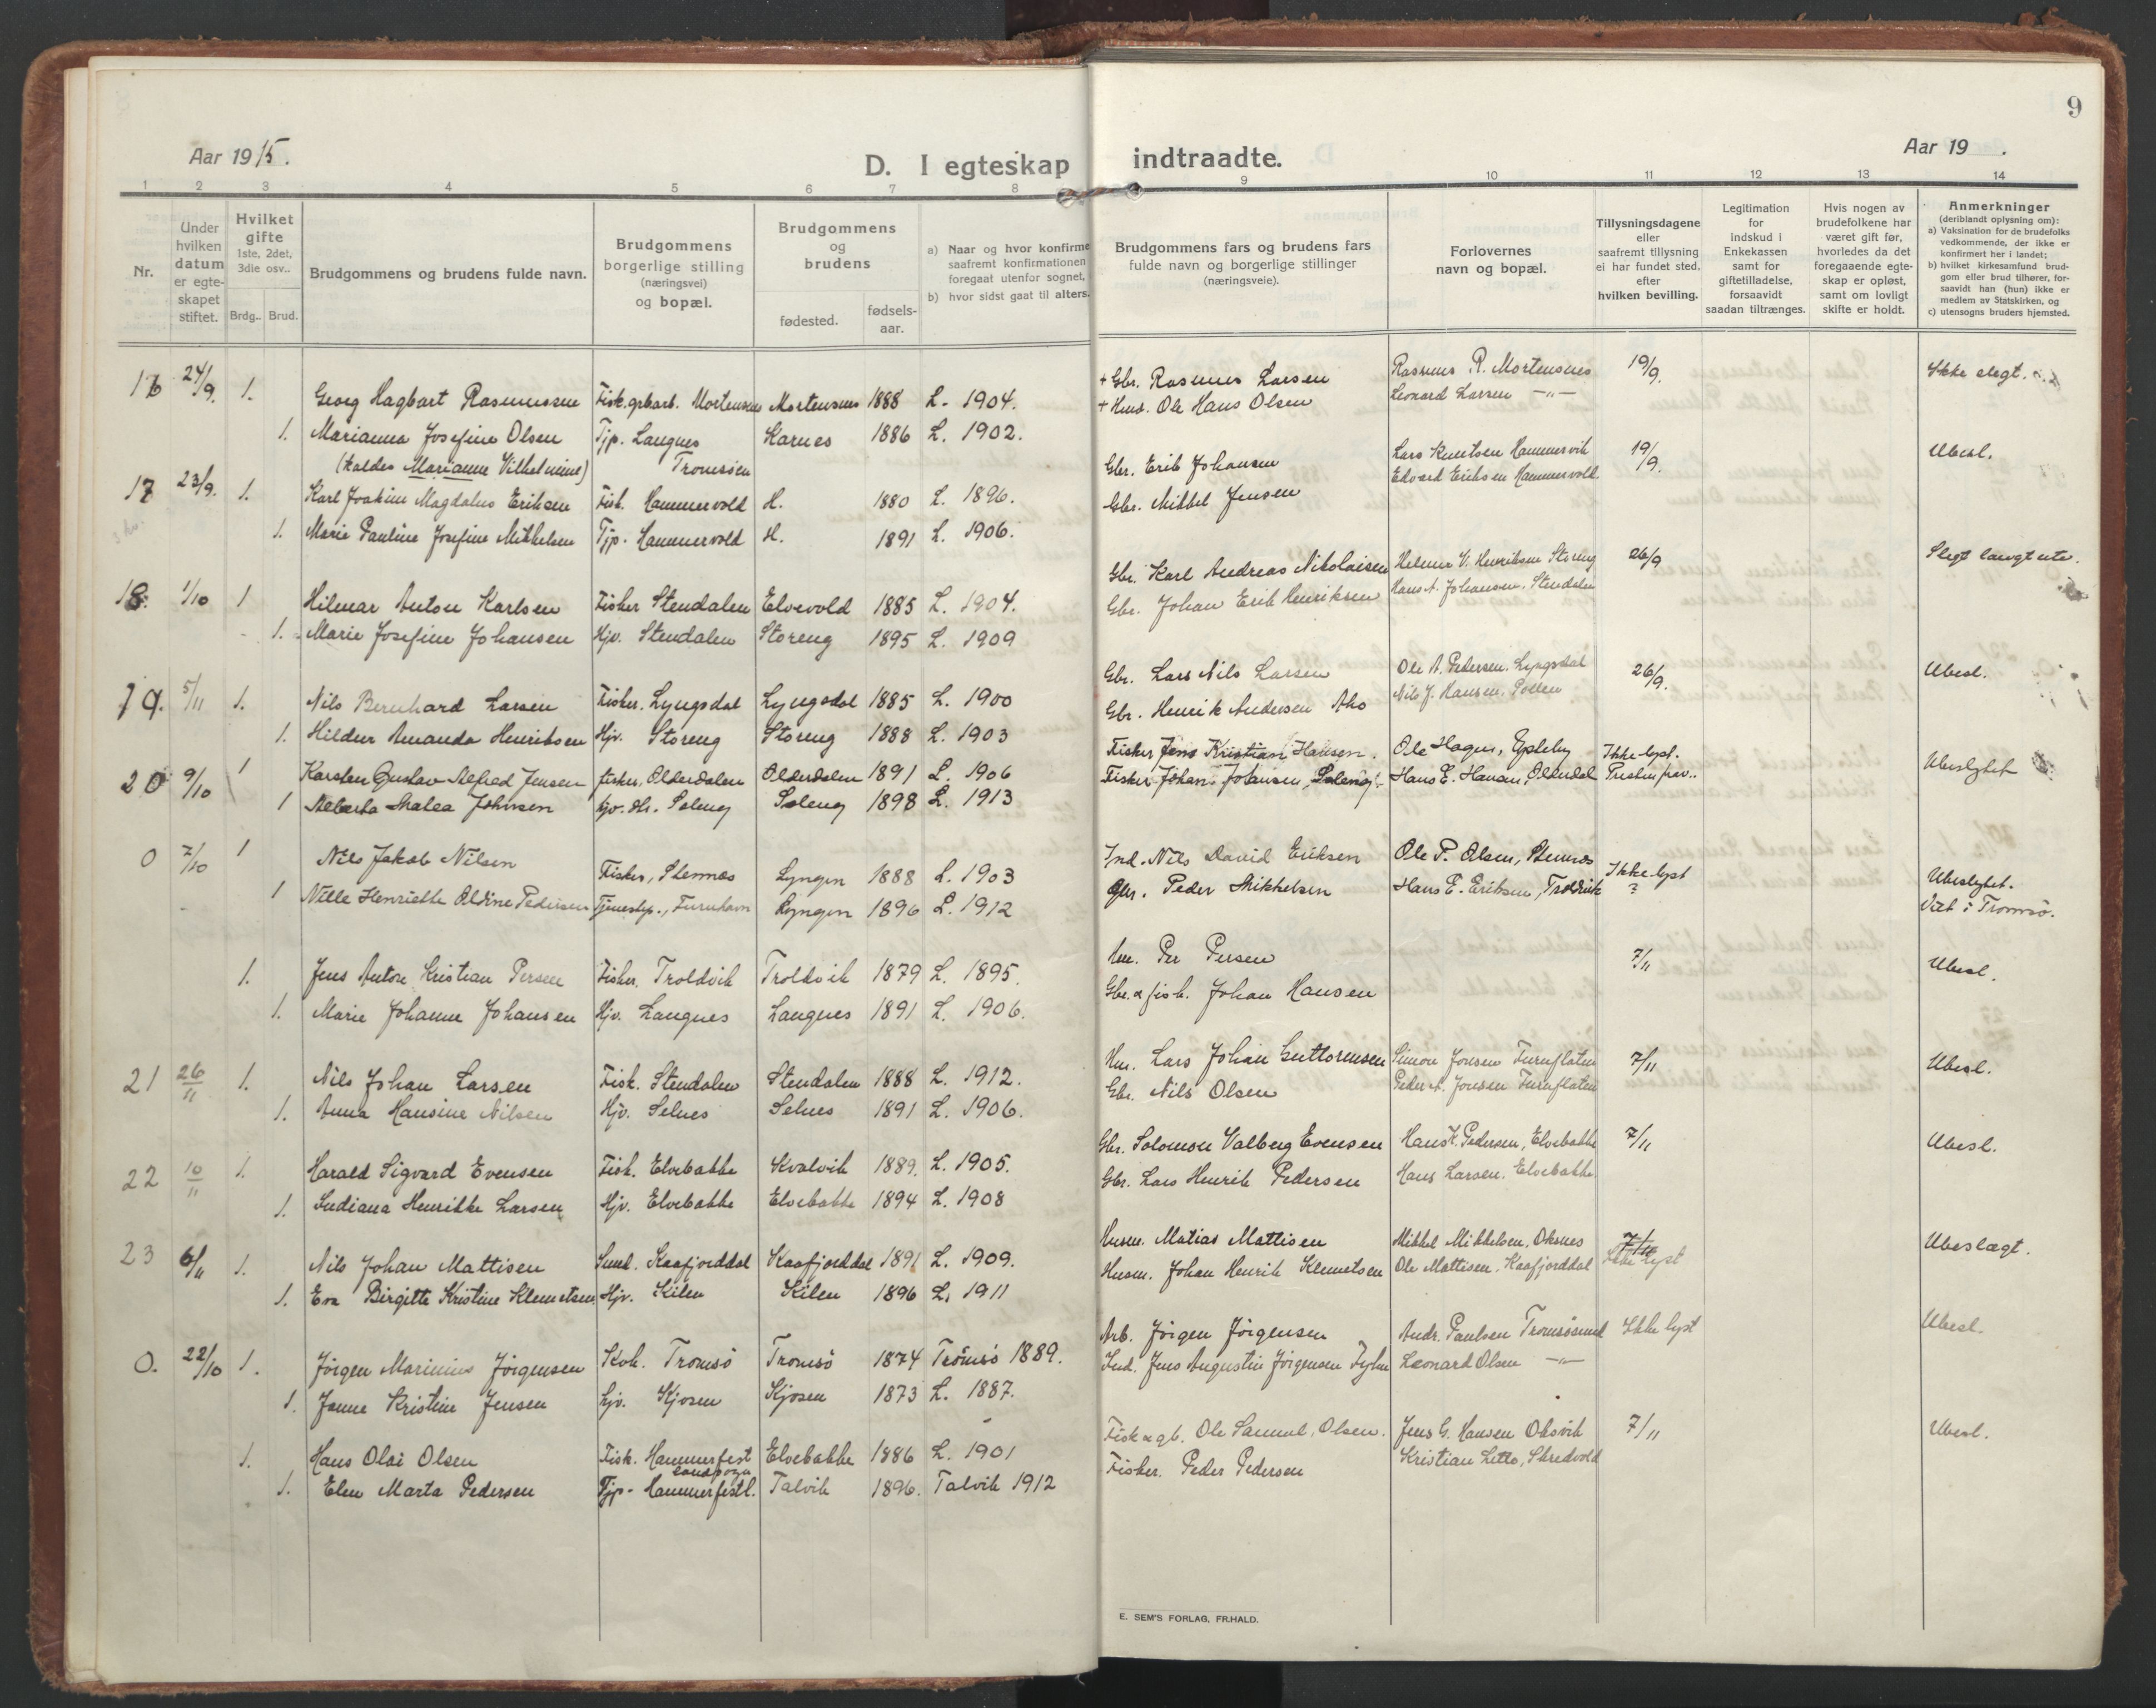 9
Aar 1915.
D. I egteskap indtraadte.
Aar 19 .
1 2 3 4 5 6 7 8 9 10 11 12 13 14
Nr.
Under hvilken datum er egte-skapet stiftet.
Hvilket gifte 1ste, 2det, 3die osv..
Brdg.. Brud.
Brudgommens og brudens fulde navn.
Brudgommens borgerlige stilling (næringsvei) og bopæl.
Brudgommens og brudens
fødested.
fødsels-aar.
a) Naar og hvor konfirme
saafremt konfirmationen
foregaat utenfor sognet,
b) hvor sidst gaat til alters.
Brudgommens fars og brudens fars
fulde navn og borgerlige stillinger
(næringsveie).
Forlovernes
navn og bopæl.
Tillysningsdagene
eller
saafremt tillysning
ei har fundet sted.
efter
hvilken bevilling.
Legitimation
for
indskud i
Enkekassen
samt for
giftetilladelse,
forsaavidt
saadan tiltrænges.
Hvis nogen av
brudefolkene har
været gift før,
hvorledes da det
foregaaende egte-
skap er opløst,
samt om lovligt
skifte er holdt.
Anmerkninger
(deriblandt oplysning om):
a) Vaksination for de brudefolks
vedkommende, der ikke er
konfirmert her i landet;
b) hvilket kirkesamfund brud-
gom eller brud tilhører, for-
saavidt han (hun) ikke er
medlem av Statskirken, og
c) utensogns bruders hjemsted.
16 24/9. 1. Georg Hagbart Rasmussen Fisk. grbarb. Mortensnes Mortensnes 1888 L. 1904. + Gbr. Rasmus Larsen Rasmus R. Mortensnes 19/9. Ikke slegt.
1. Marianna Josefine Olsen Tjp. Langnes Karnes 1886 L. 1902. + Husd. Ole Hans Olsen Leonard Larsen —"—
(kaldes Marianne Vilhelmine) Tromsøen
17 23/9. 1. Karl Joakim Magdalus Eriksen Fisk. Hammervold H. 1880 L. 1896. Gbr. Erik Johansen Lars Knutsen Hammervik 19/9. Ubesl.
1. Marie Pauline Josefine Mikkelsen Tjp. Hammervold H. 1891 L. 1906. Gbr. Mikkel Jensen Edvard Eriksen Hammervold.
18. 1/10 1 Hilmar Anton Karlsen Fisker Stendalen Elvevold 1885 L. 1904. Gbr. Karl Andreas Nikolaisen Helmer V. Henriksen Storeng 26/9 Slegt langt ute.
1. Marie Josefine Johansen Hjv. Stendalen Storeng 1895 L. 1909 Gbr. Johan Erik Henriksen Hans A. Johansen. Stendalen
19. 5/11 1. Nils Bernhard Larsen Fisker. Lyngsdal Lyngsdal 1885 L. 1900 Gbr. Lars Nils Larsen Ole A. Pedersen. Lyngsdal 26/9. Ubesl.
1. Hildur Amanda Henriksen Hjv. Storeng Storeng 1888 L. 1903 Gbr. Henrik Andersen Aho Nils J. Hansen. Pollen
20 9/10 1 Karsten Gustav Alfred Jensen fisker, Olderdalen Olderdalen 1891 L. 1906 Fisker Jens Kristian Hansen. Ole Hagen, Epleby Ikke lyst. Ubeslgtet
1 Alberta Malea Johnsen hjv. dtr. Soleng Soleng 1898 L. 1913 Fisker Johan Johansen, Soleng. Hans E. Hansen, Olderdal
0 7/10 1 Nils Jakob Nilsen Fisker, Stennæs Lyngen 1888 L. 1903 Ind. Nils David Eriksen Ole P. Olsen, Stennæs Ikke lyst ? Ubeslgtet.
1 Nille Henriette Oldine Pedersen Tjenestep., Furuhavn Lyngen 1896 L. 1912 Gbr. Peder Mikkelsen Hans E. Eriksen, Troldvik Viet i Tromsø.
1. Jens Anton Kristian Persen Fisker. Troldvik Troldvik 1879 L. 1895. Hm. Per Persen 7/11 Ubesl.
1. Marie Johanne Johansen Hjv. Langnes Langnes 1891 L. 1906. Gbr. & fisk. Johan Hansen
21 26/11 1. Nils Johan Larsen Fisk. Stendalen Stendalen 1888 L. 1912. Hm. Lars Johan Guttormsen Simon Jonsen Furuflaten 7/11 Ubesl.
1. Anna Hansine Nilsen Hjv. Selnes Selnes 1891 L. 1906. Gbr. Nils Olsen Peder A. Jonsen Furuflaten
22 10/11 1. Harald Sigvard Evensen Fisk. Elvebakke Kvalvik 1889. L. 1905. Gbr. Solomon Valberg Evensen Hans K. Pedersen, Elvebakke 7/11 Ubesl.
1. Indiana Henrikke Larsen Hjv. Elvebakke Elvebakke 1894 L. 1908 Gbr. Lars Henrik Pedersen Hans Larsen. Elvebakke.
23 6/11 1. Nils Johan Mattisen Smed. Kaafjorddal Kaafjorddal 1891 L. 1909. Husm. Matias Mattisen Mikkel Mikkelsen, Oksnes 7/11 Ikke lyst Ubeslægt.
1. Eva Birgitte Kristine Klemetsen. Hjv. Kilen Kilen 1896 L. 1911 Husm. Johan Henrik Klemetsen Ole Mattisen. Kaafjorddal
0. 22/10 1. Jörgen Marinius Jörgensen Kok. Tromsö Tromsö 1874 Tromsö 1889. Arb. Jörgen Jörgensen Andr. Paulsen Tromsösund Ikke lyst Ubesl.
1. Janne Kristine Jensen hjv. Kjosen Kjosen 1873 L. 1887. Ind. Jens Augustin Jörgensen Leonard Olsen —"—
1. Hans Olai Olsen Fisk. Hammerfest landsogn Elvebakke 1886 L. 1901 Fisk & gb. Ole Samuel Olsen. Jens G. Hansen Oksvik 7/11 Ubesl.
1. Elen Marta Pedersen Tjp. Hammerfestl. Talvik 1896. Talvik 1912 Fisker. Peder Pedersen Kristian Letto,
E. SEM'S FORLAG, FR.HALD.